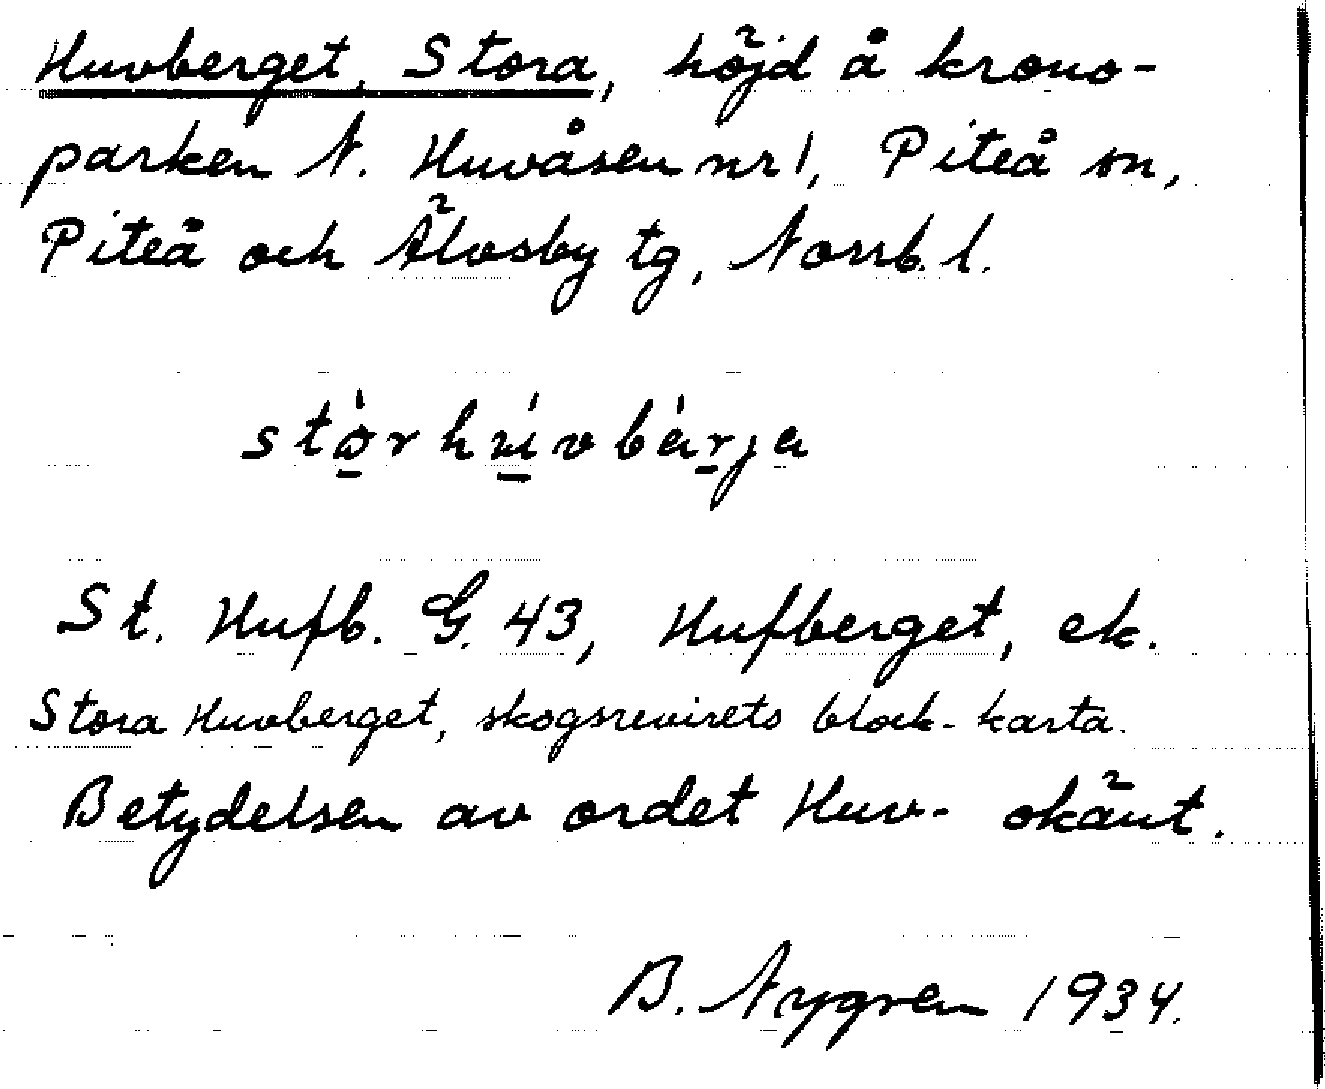 Huvberget, Stora, höjd å krono-
parken N. Huvåsen nr 1, Piteå sn,
Piteå och Älvsby tg, Norrb. l.
stòrhúvbàrja
St. Hufb. G. 43, Hufberget, ek.
Stora Huvberget, skogsrevirets block-karta.
Betydelsen av ordet Huv- okänt.
B. Nygren 1934.